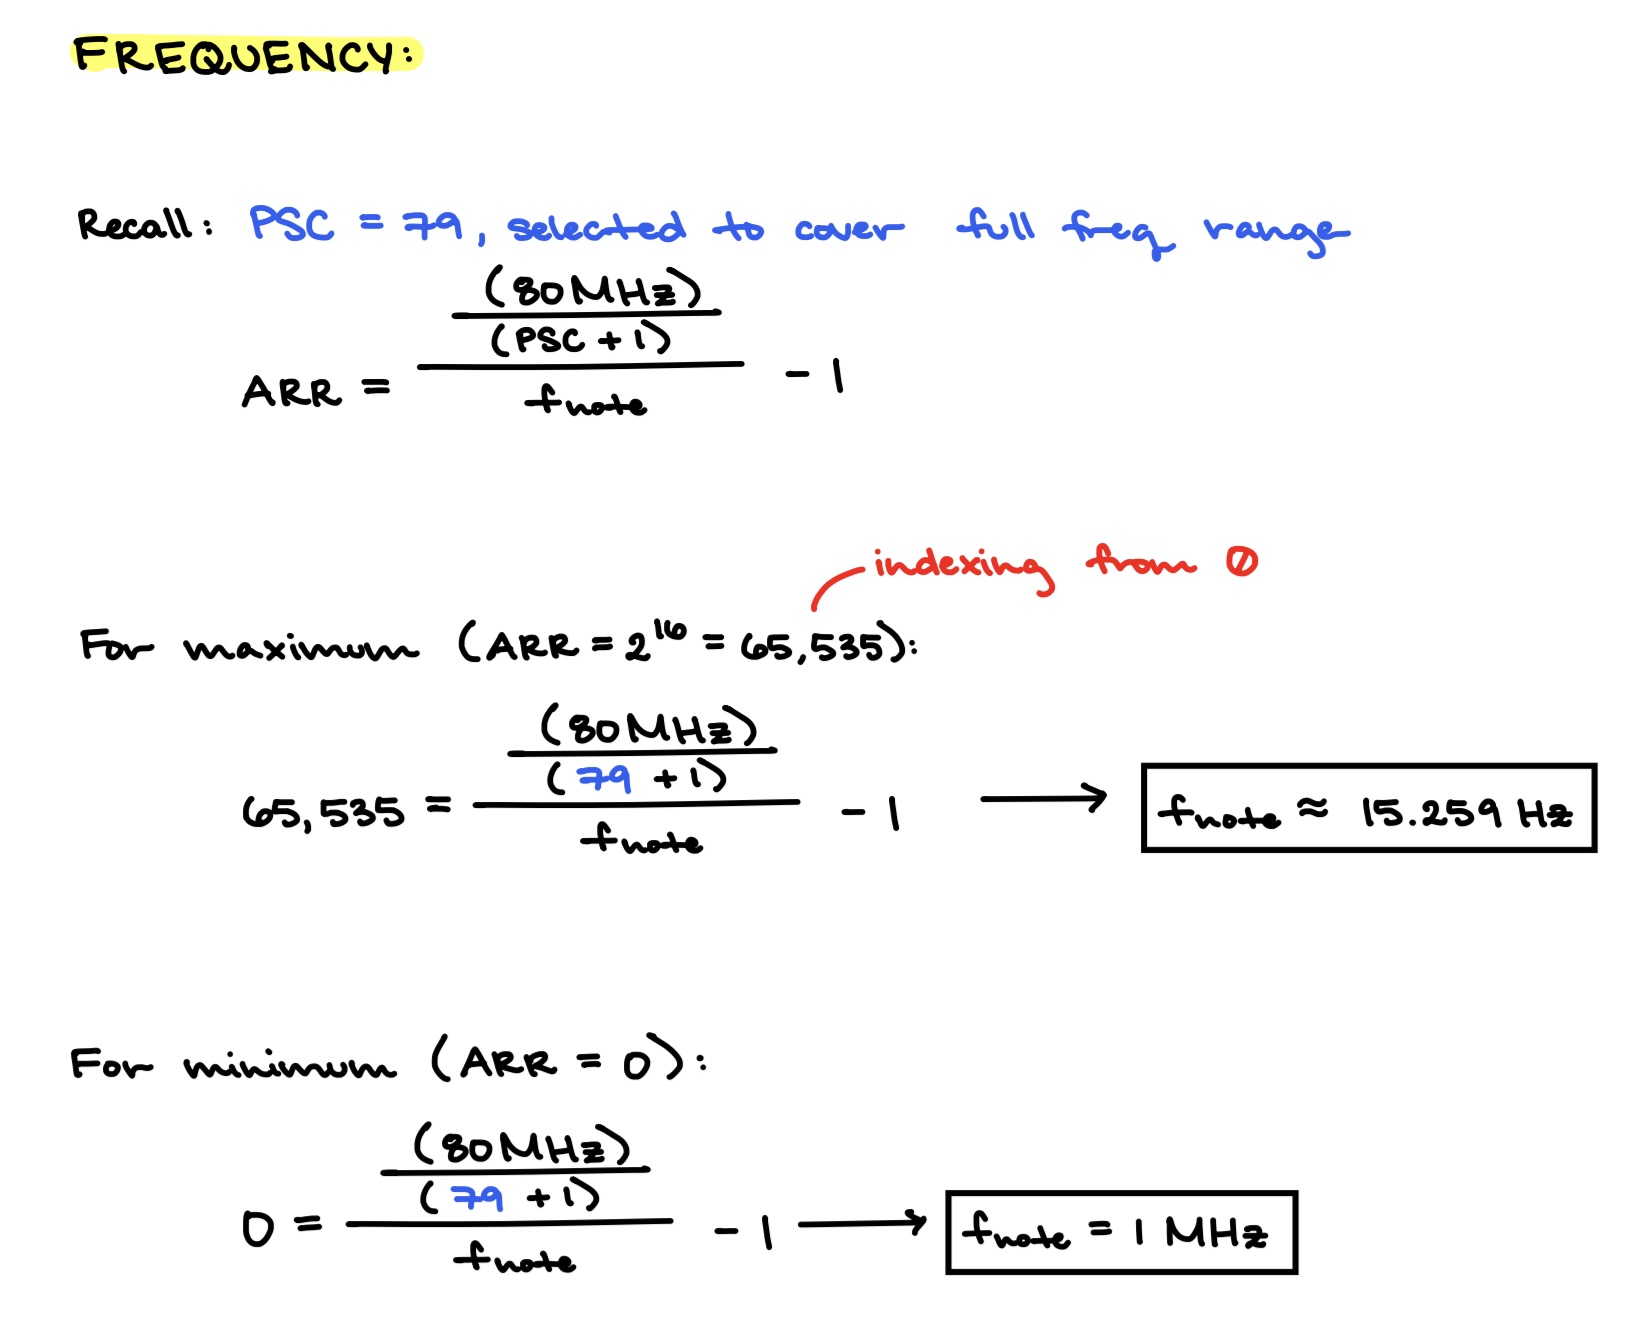 FREQUENCY:
Recall: PSC = 79, selected to cover full freq range
(80MHz)
(PSC + 1)
ARR = - 1
fnote
indexing from 0
For maximum (ARR = 2^16 = 65,535):
(80MHz)
(79 + 1)
65,535 = - 1 → fnote ≈ 15.259 Hz
fnote
For minimum (ARR = 0):
(80MHz)
(79 + 1)
0 = - 1 → fnote = 1 MHz
fnote